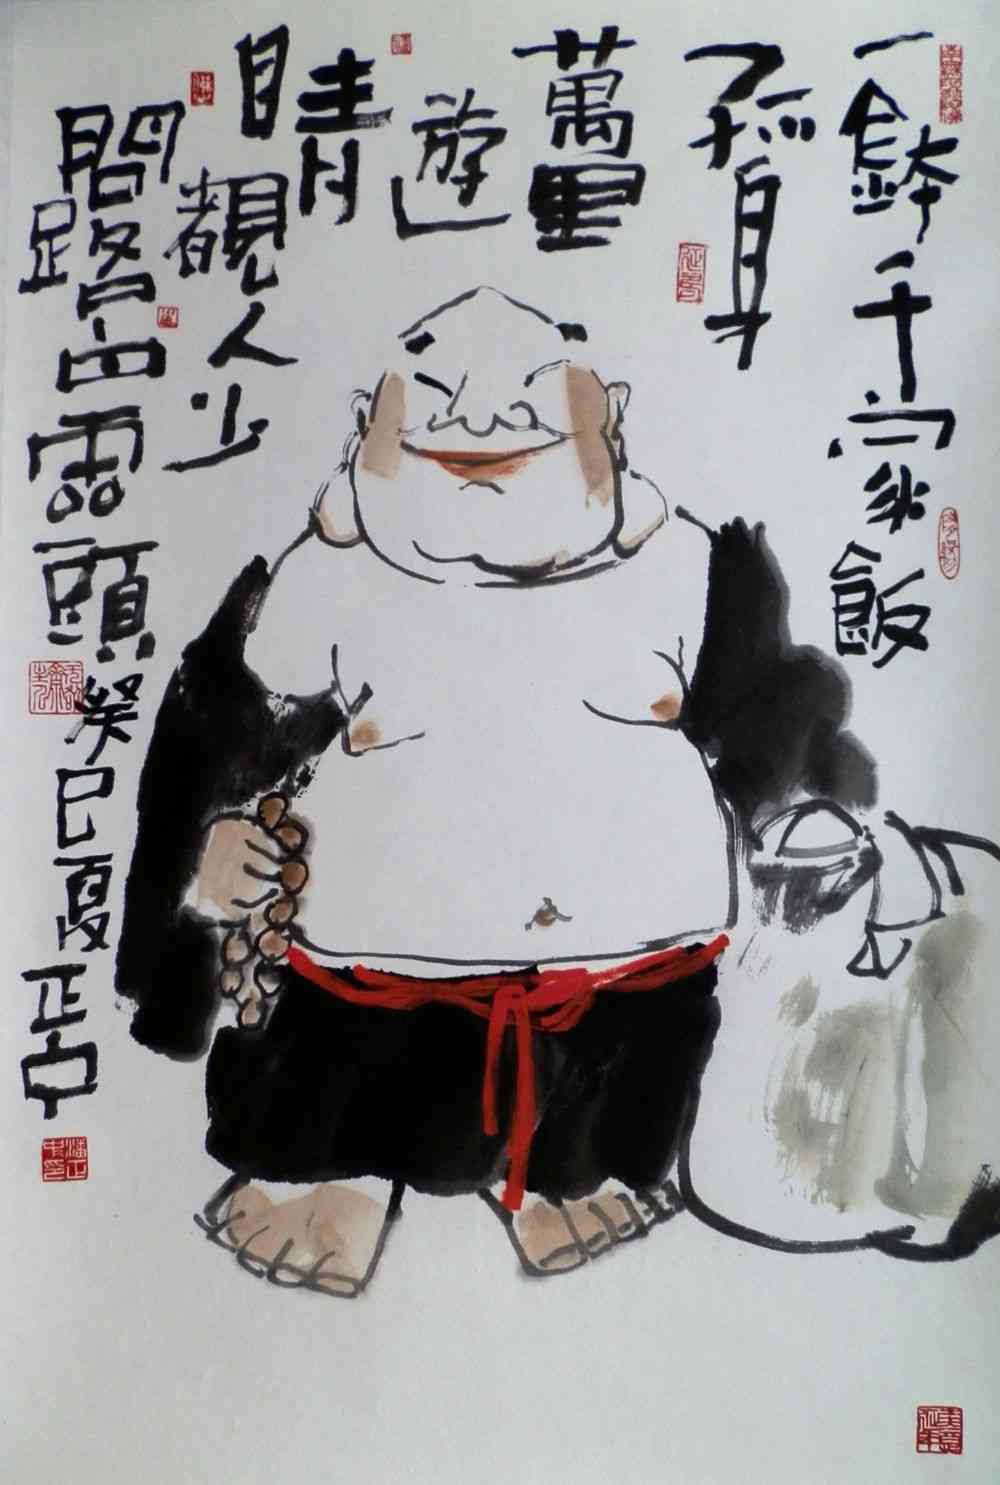 一鉢千家飯
孤身
萬里
遊
青
目覩人少
問路白雲頭癸巳夏正中